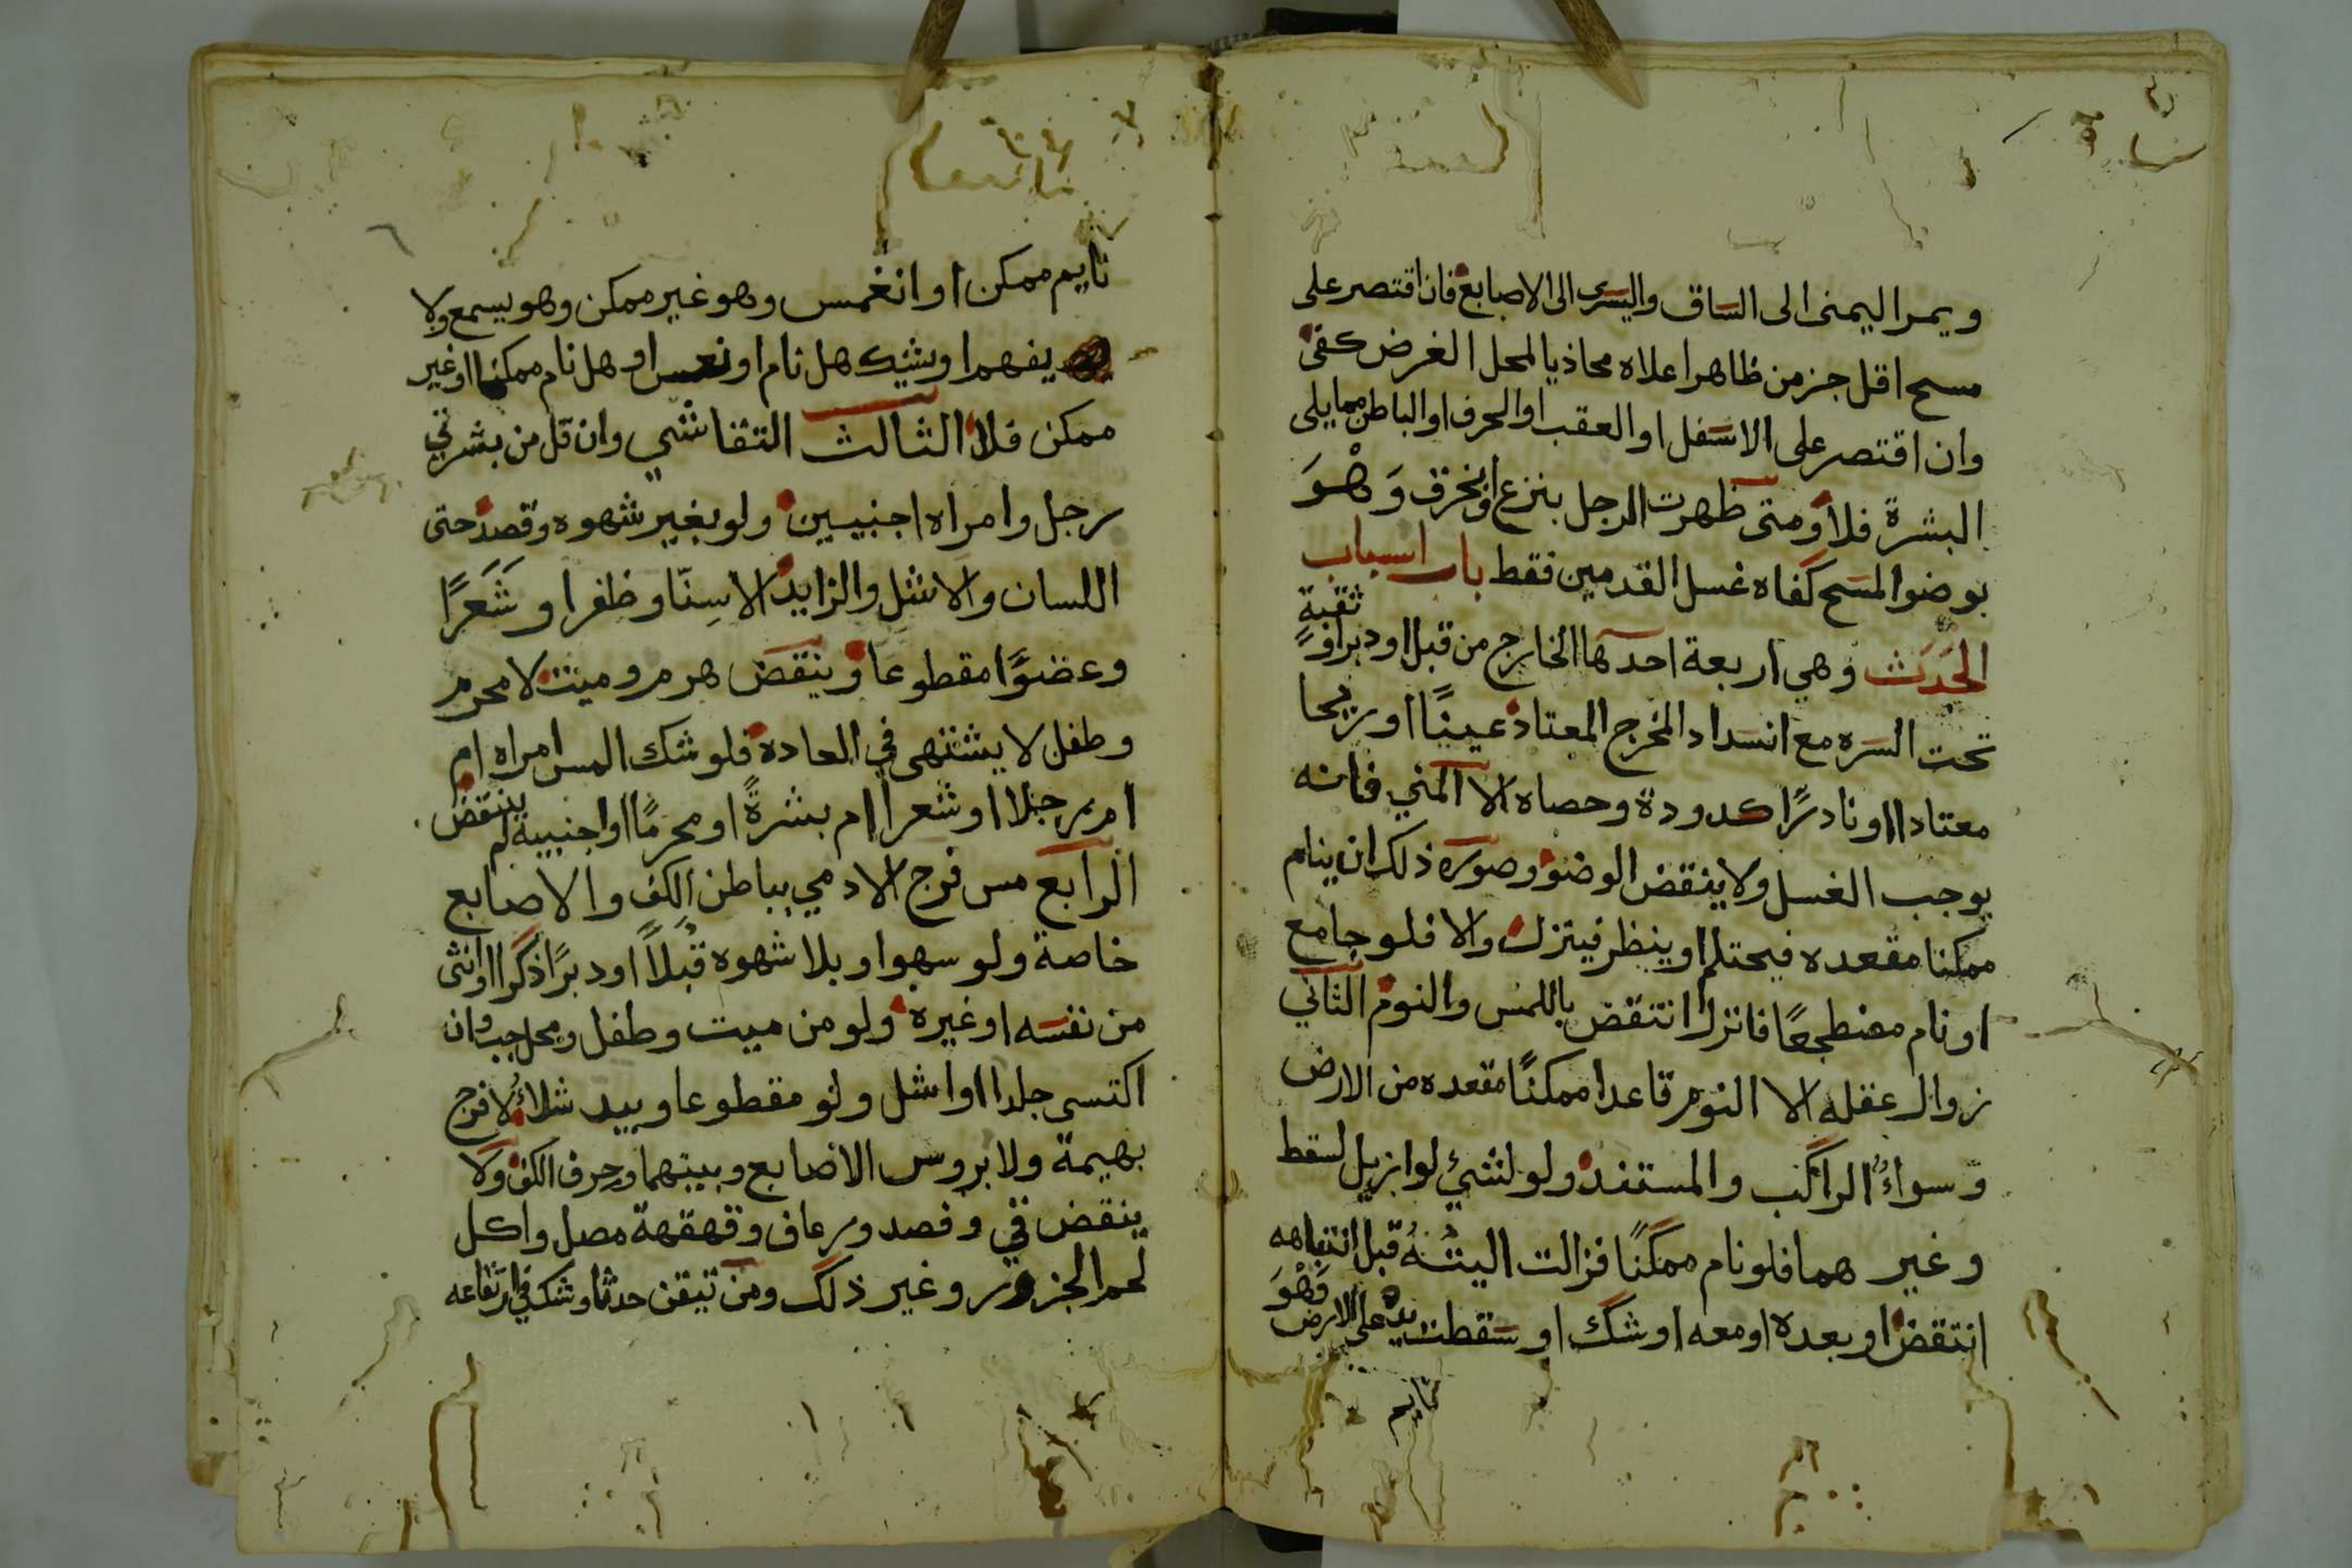 ويمر اليمنى الى الساق واليسرى الى الاصابع فان اقتصر على
مسح اقل جز من ظاهر اعلاه محاذيا لمحل الغرض كفى
وان اقتصر على الاسفل او العقب او الحرف او الباطن مما يلى
البشرة فلا ومتى ظهرت الرجل بنزع او بخرق وَهْوَ
بوضو المسح كفاه غسل القدمين فقط باب اسباب
الحَدَث وهي اربعة احدها الخارج من قبل او دبر او ثقبةٍ
تحت السره مع انسداد المخرج المعتاد عينًا او ريحا
معتادا او نادرًا كدودة وحصاه الا المني فانه
يوجب الغسل ولا ينقض الوضو وصوره ذلك ان ينام
ممكنا مقعده فيحتلم او ينظر فينزل والا فلو جامع
او نام مضطجعًا فانزل انتقض باللمس والنوم الثاني
زوال عقله الا النوم قاعدا ممكنًا مقعده من الارض
وسواءٌ الراكب والمستند ولو لشيء لو ازيل لسقط
وغير هما فلو نام ممكنًا فزالت اليتهُ قبل انتباهه
انتقض او بعده او معه او شك او سقطت يده على الارض فَهْوَ
نايم
نايم ممكن او انغمس وهو غير ممكن وهو يسمع ولا
يفهم او شك هل نام او نعس او هل نام ممكنا او غير
ممكن فلا الثالث التقا شي وان قل من بشرتي
رجل وامراه اجنبيين ولو بغير شهوه وقصد حتى
اللسان والاشل والزايد الا سِنّا وظفرا وشَعَرًا
وعضوًا مقطوعا وينقض هرم وميت لا محرم
وطفل لا يشتهى في العاده فلو شك المس امراه ام
ام رجلا او شعرا ام بشرةً او محرمًا او اجنبية لم ينتقض
الرابع مس فرج الادمي بباطن الكف والاصابع
خاصة ولو سهوا وبلا شهوه قُبلاً او دبرًا ذكرا او انثى
من نفسه او غيره ولو من ميت وطفل ومحل جب وان
اكتسى جلدا او اشل ولو مقطوعا وبيد شلاءُ لا فرج
بهيمة ولا بروس الاصابع وبينهما وحرف الكف ولا
ينقض قي وفصد ورعاف وقهقهة مصل واكل
لحم الجزور وغير ذلك ومن تيقن حدثا وشك في ارتفاعه